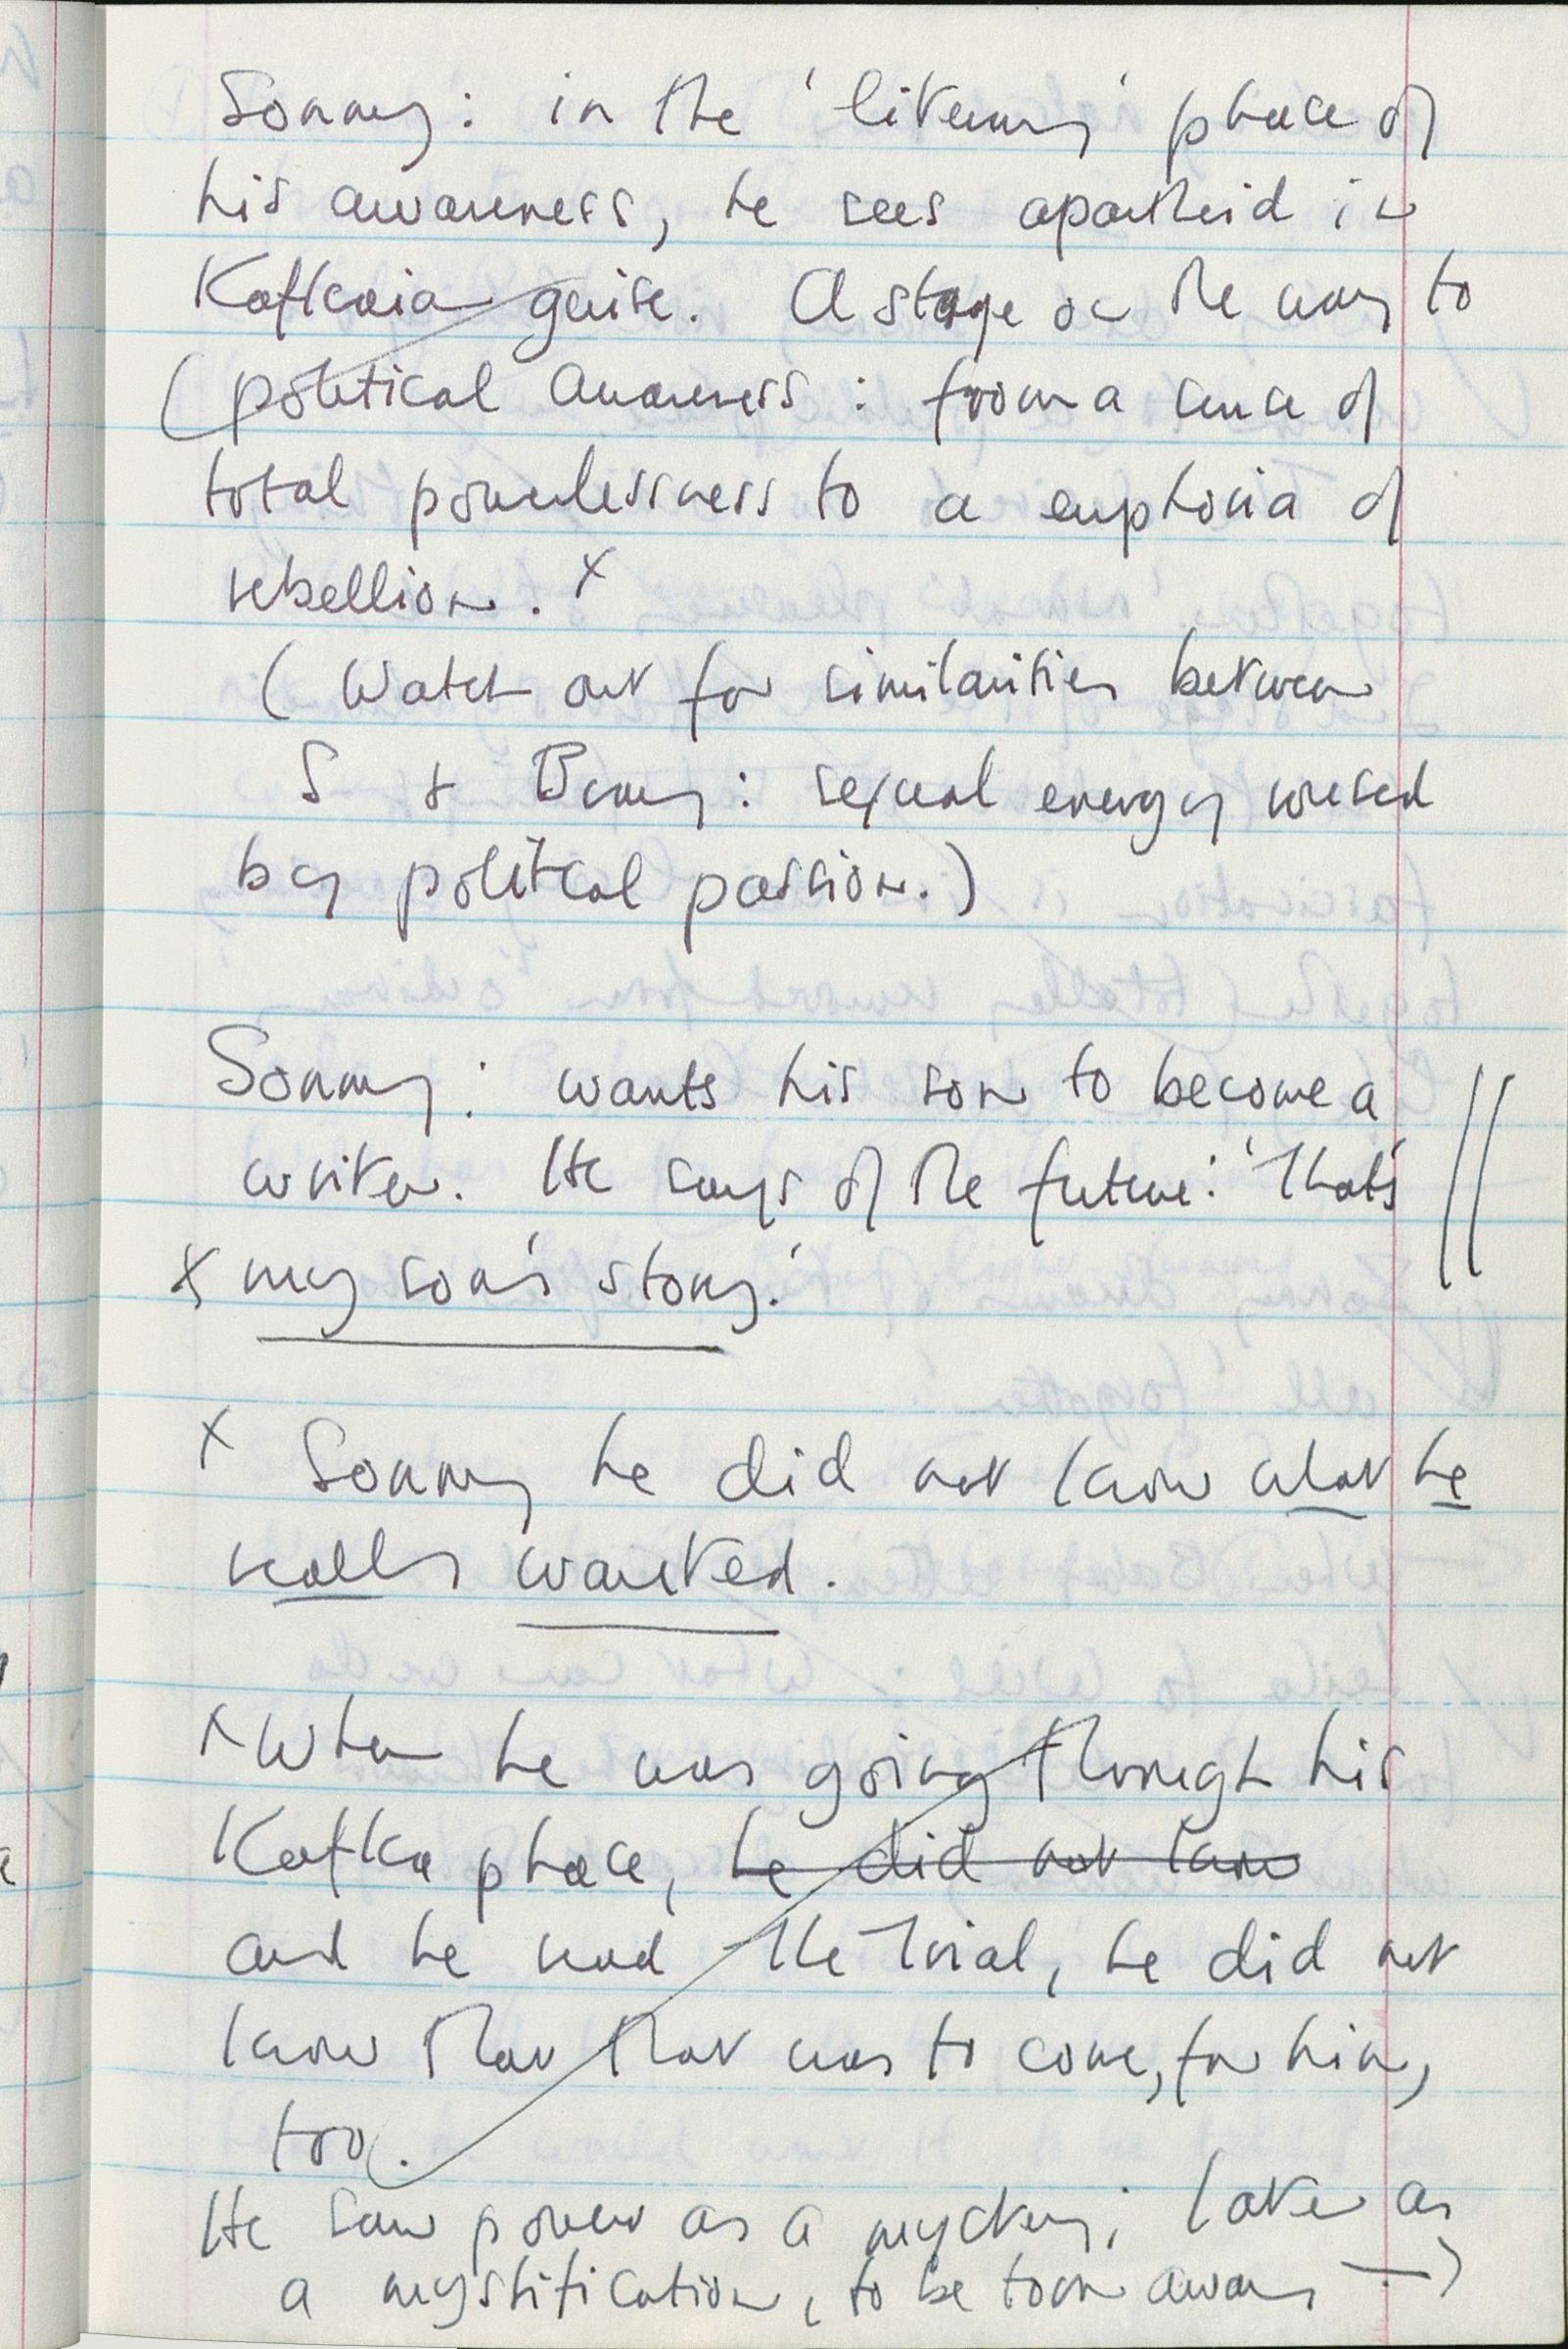 Sonny: in the 'literary' phase of
his awareness, he sees apartheid in
Kafkaia guise. A stage on the way to
(political awareness: from a sense of
total powerlessness to a euphoria of
rebellion. x
(Watch out for similarities between
S & Benny: sexual energy
by political passion.)
Sonny: wants his son to become a
writer. He says of the future: 'That's
x my son's story.'
x Sonny he did not know what he
really wanted.
x When he was going through his
Kafka phase, he did not know
and he read The Trial, he did not
know that that was to come, for him,
too.
He saw power as a mystery; later as
a mystification, to be torn away →